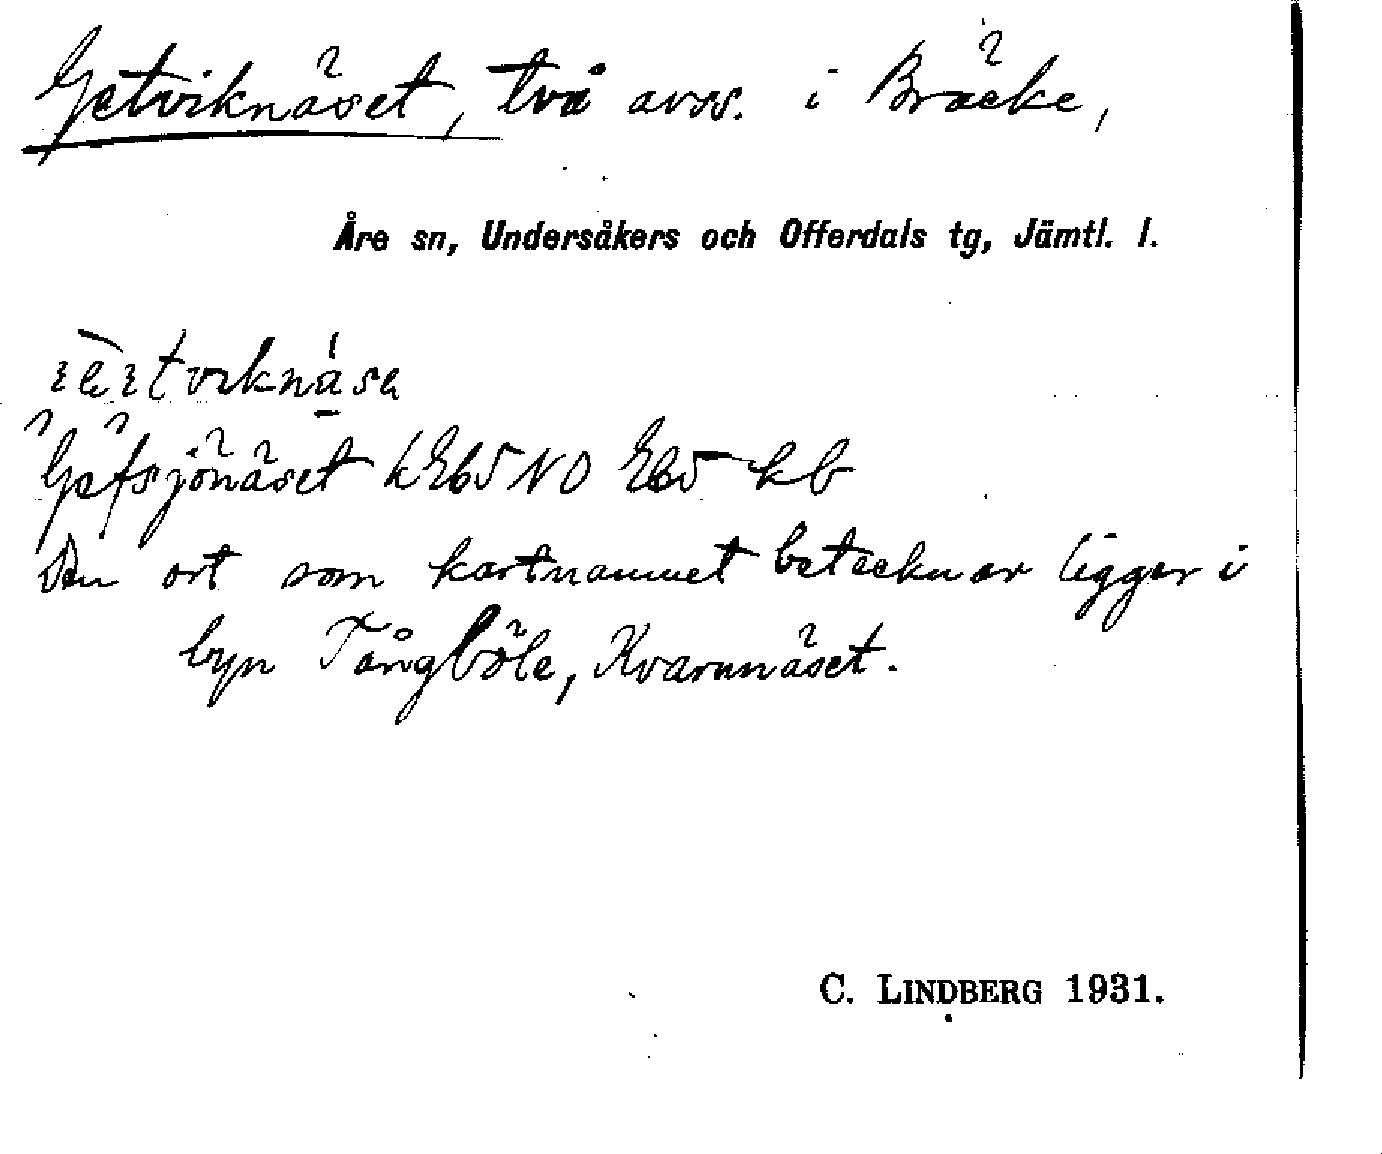 Getviknäset, två avss. i Bräcke,
Åre sn, Undersåkers och Offerdals tg, Jämtl. l.
"Gefsjönäset kEb5NO Eb5 kb
Den ort som kartnamnet betecknar ligger i
byn Tångböle, Kvarnnäset.
C. LINDBERG 1931.